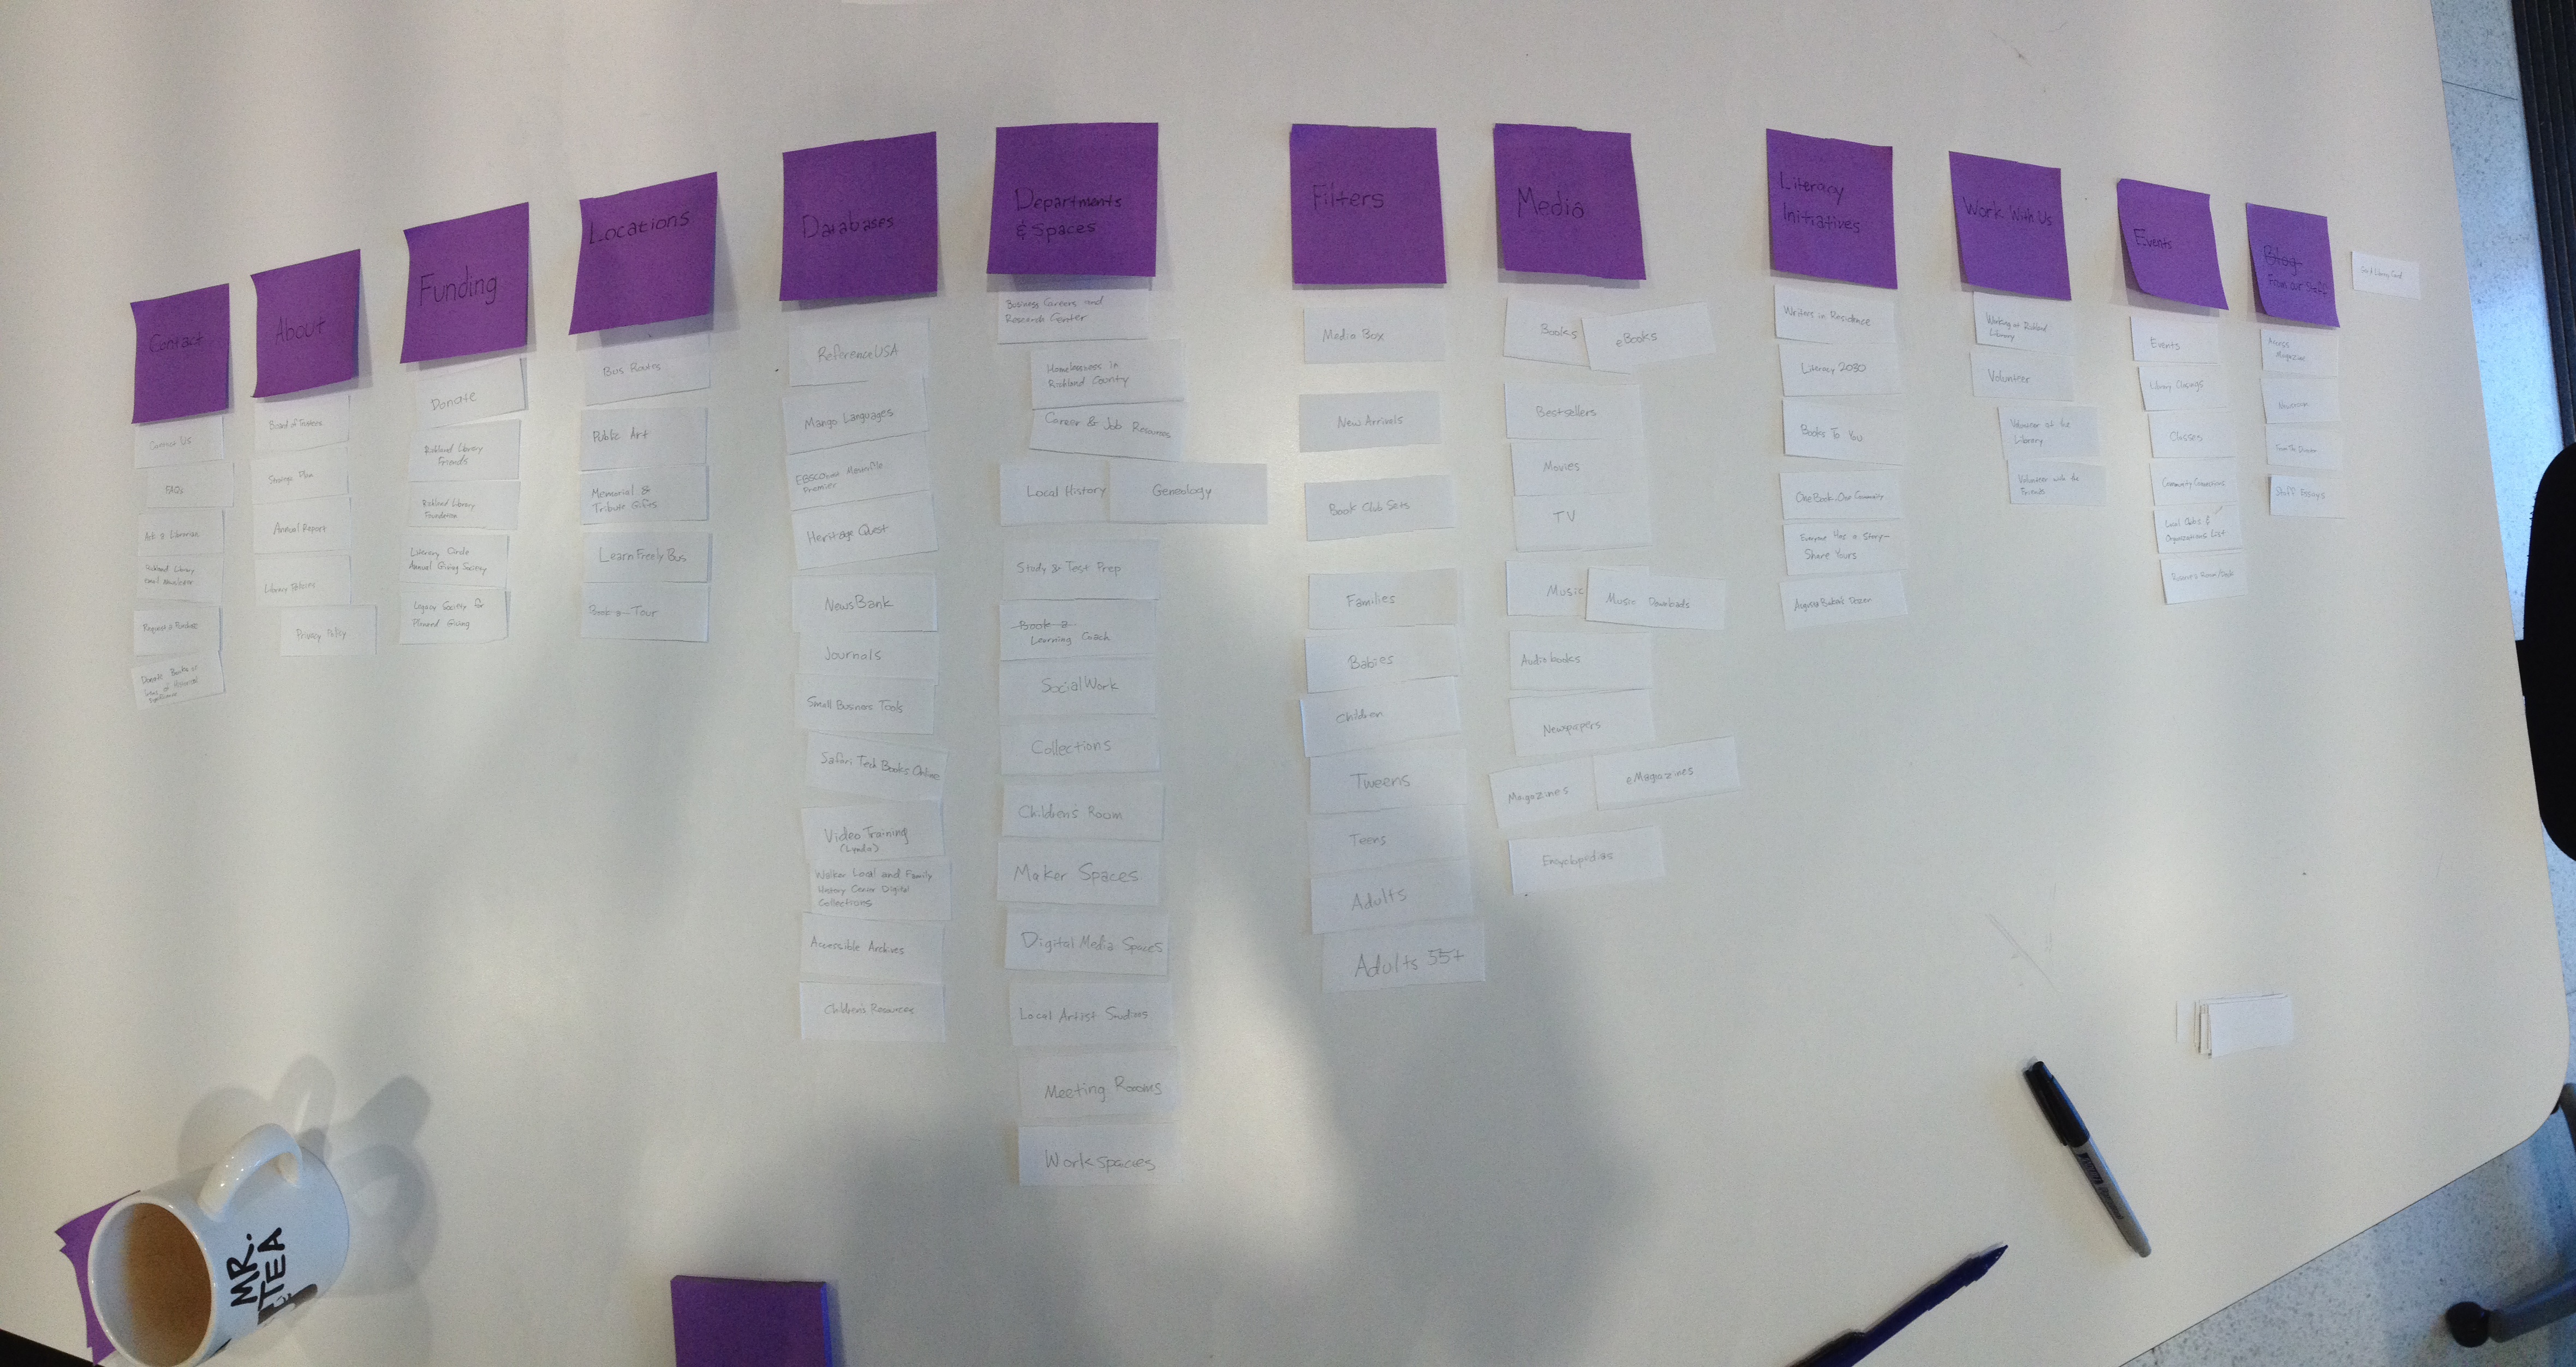 Contact
Contact Us
FAQs
Ask a Librarian
Richland Library
email Newsletter
Request a Purchase
Donate Books or
Items of Historical
Significance
About
Board of Trustees
Strategic Plan
Annual Report
Library Policies
Privacy Policy
Funding
Donate
Richland Library
Friends
Richland Library
Foundation
Literary Circle
Annual Giving Society
Legacy Society for
Planned Giving
Locations
Bus Routes
Public Art
Memorial &
Tribute Gifts
Learn Freely Bus
Book a Tour
Databases
ReferenceUSA
Mango Languages
EBSCOhost Masterfile
Premier
Heritage Quest
NewsBank
Journals
Small Business Tools
Safari Tech Books Online
Video Training
(Lynda)
Walker Local and Family
History Center Digital
Collections
Accessible Archives
Children's Resources
Departments
& Spaces
Business Careers and
Research Center
Homelessness in
Richland County
Career & Job Resources
Local History
Genealogy
Study & Test Prep
Book a
Learning Coach
Social Work
Collections
Children's Room
Maker Spaces
Digital Media Spaces
Local Artist Studios
Meeting Rooms
Workspaces
Filters
Media Box
New Arrivals
Book Club Sets
Families
Babies
Children
Tweens
Teens
Adults
Adults 55+
Media
Books
eBooks
Bestsellers
Movies
TV
Music
Music Downloads
Audiobooks
Newspapers
Magazines
eMagazines
Encyclopedias
Literacy
Initiatives
Writers in Residence
Literacy 2030
Books To You
One Book, One Community
Everyone Has a Story-
Share Yours
Augusta Baker's Dozen
Work With Us
Working at Richland
Library
Volunteer
Volunteer at the
Library
Volunteer with the
Friends
Events
Events
Library Closings
Classes
Community Connections
Local Clubs &
Organizations List
Reserve Room/Desk
Blog
From our Staff
Access
Magazine
Newsroom
From The Director
Staff Essays
Get A Library Card
MR.
TEA